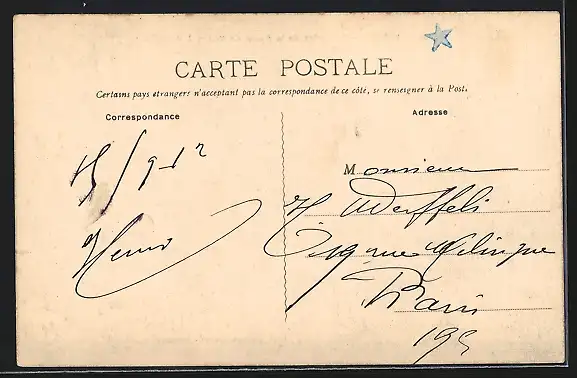 CARTE POSTALE
Certains pays étrangers n'acceptant pas la correspondance de ce côté, se renseigner à la Post.
Correspondance
Adresse
15/9-12
Monsieur
H
rue
Paris
19e